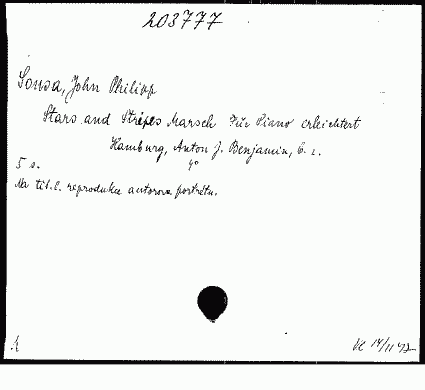 203777
Sousa, John Philipp
Stars and Stripes Marsch Für Piano erleichtert
Hamburg, Anton J. Benjamin, b. r.
5 s. 4°
Na tit. l. reprodukce autorova portrétu.